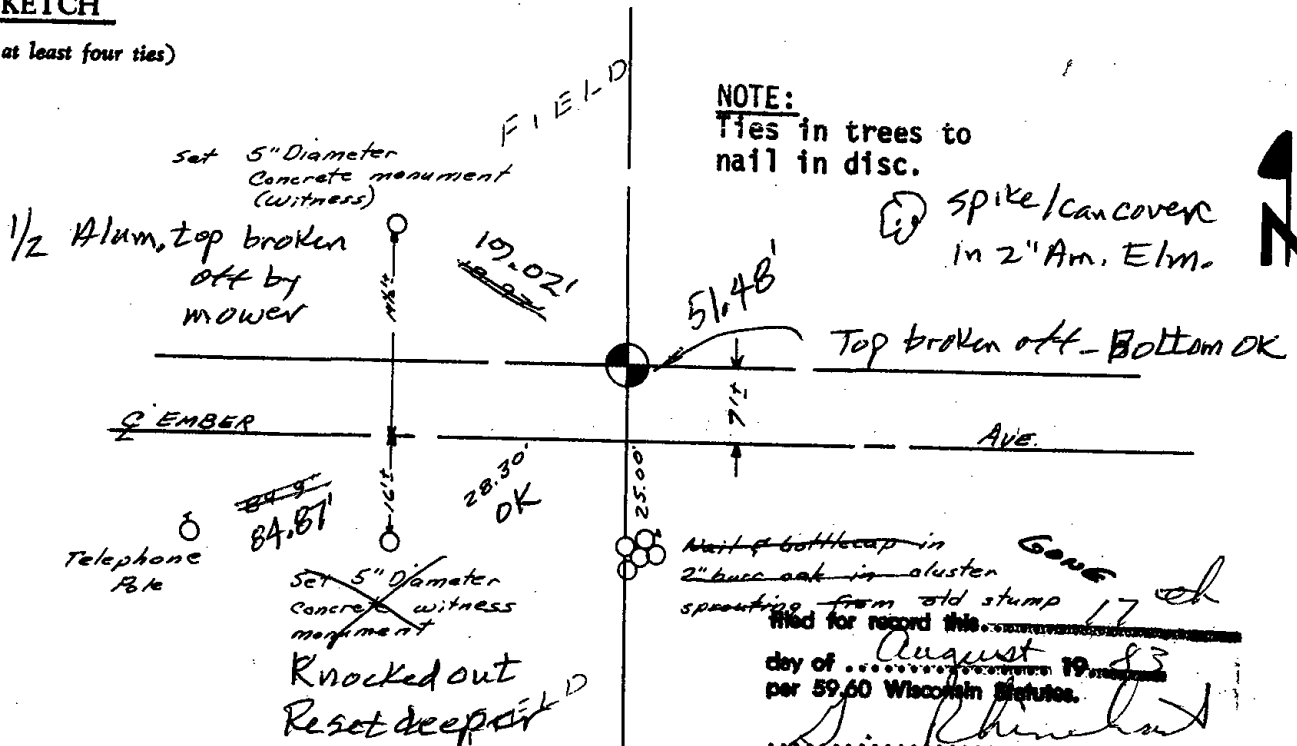 KETCH
at least four ties)
FIELD
NOTE:
Ties in trees to
nail in disc.
Set 5" Diameter
Concrete monument
(witness)
1/2 Alum. top broken
off by
mower
spike/can cover
in 2" Am. Elm.
N
51.48'
Top broken off - Bottom OK
7'±
℄ EMBER AVE.
16'±
28.30'
OK
25.00'
84.87'
Telephone
Pole
Set 5" Diameter
concrete witness
monument
Knocked out
Reset deeper
FIELD
Nail & bottlecap in
2" burr oak in cluster
sprouting from old stump
GONE
filed for record this 17th
day of August 1983
per 59.60 Wisconsin Statutes.